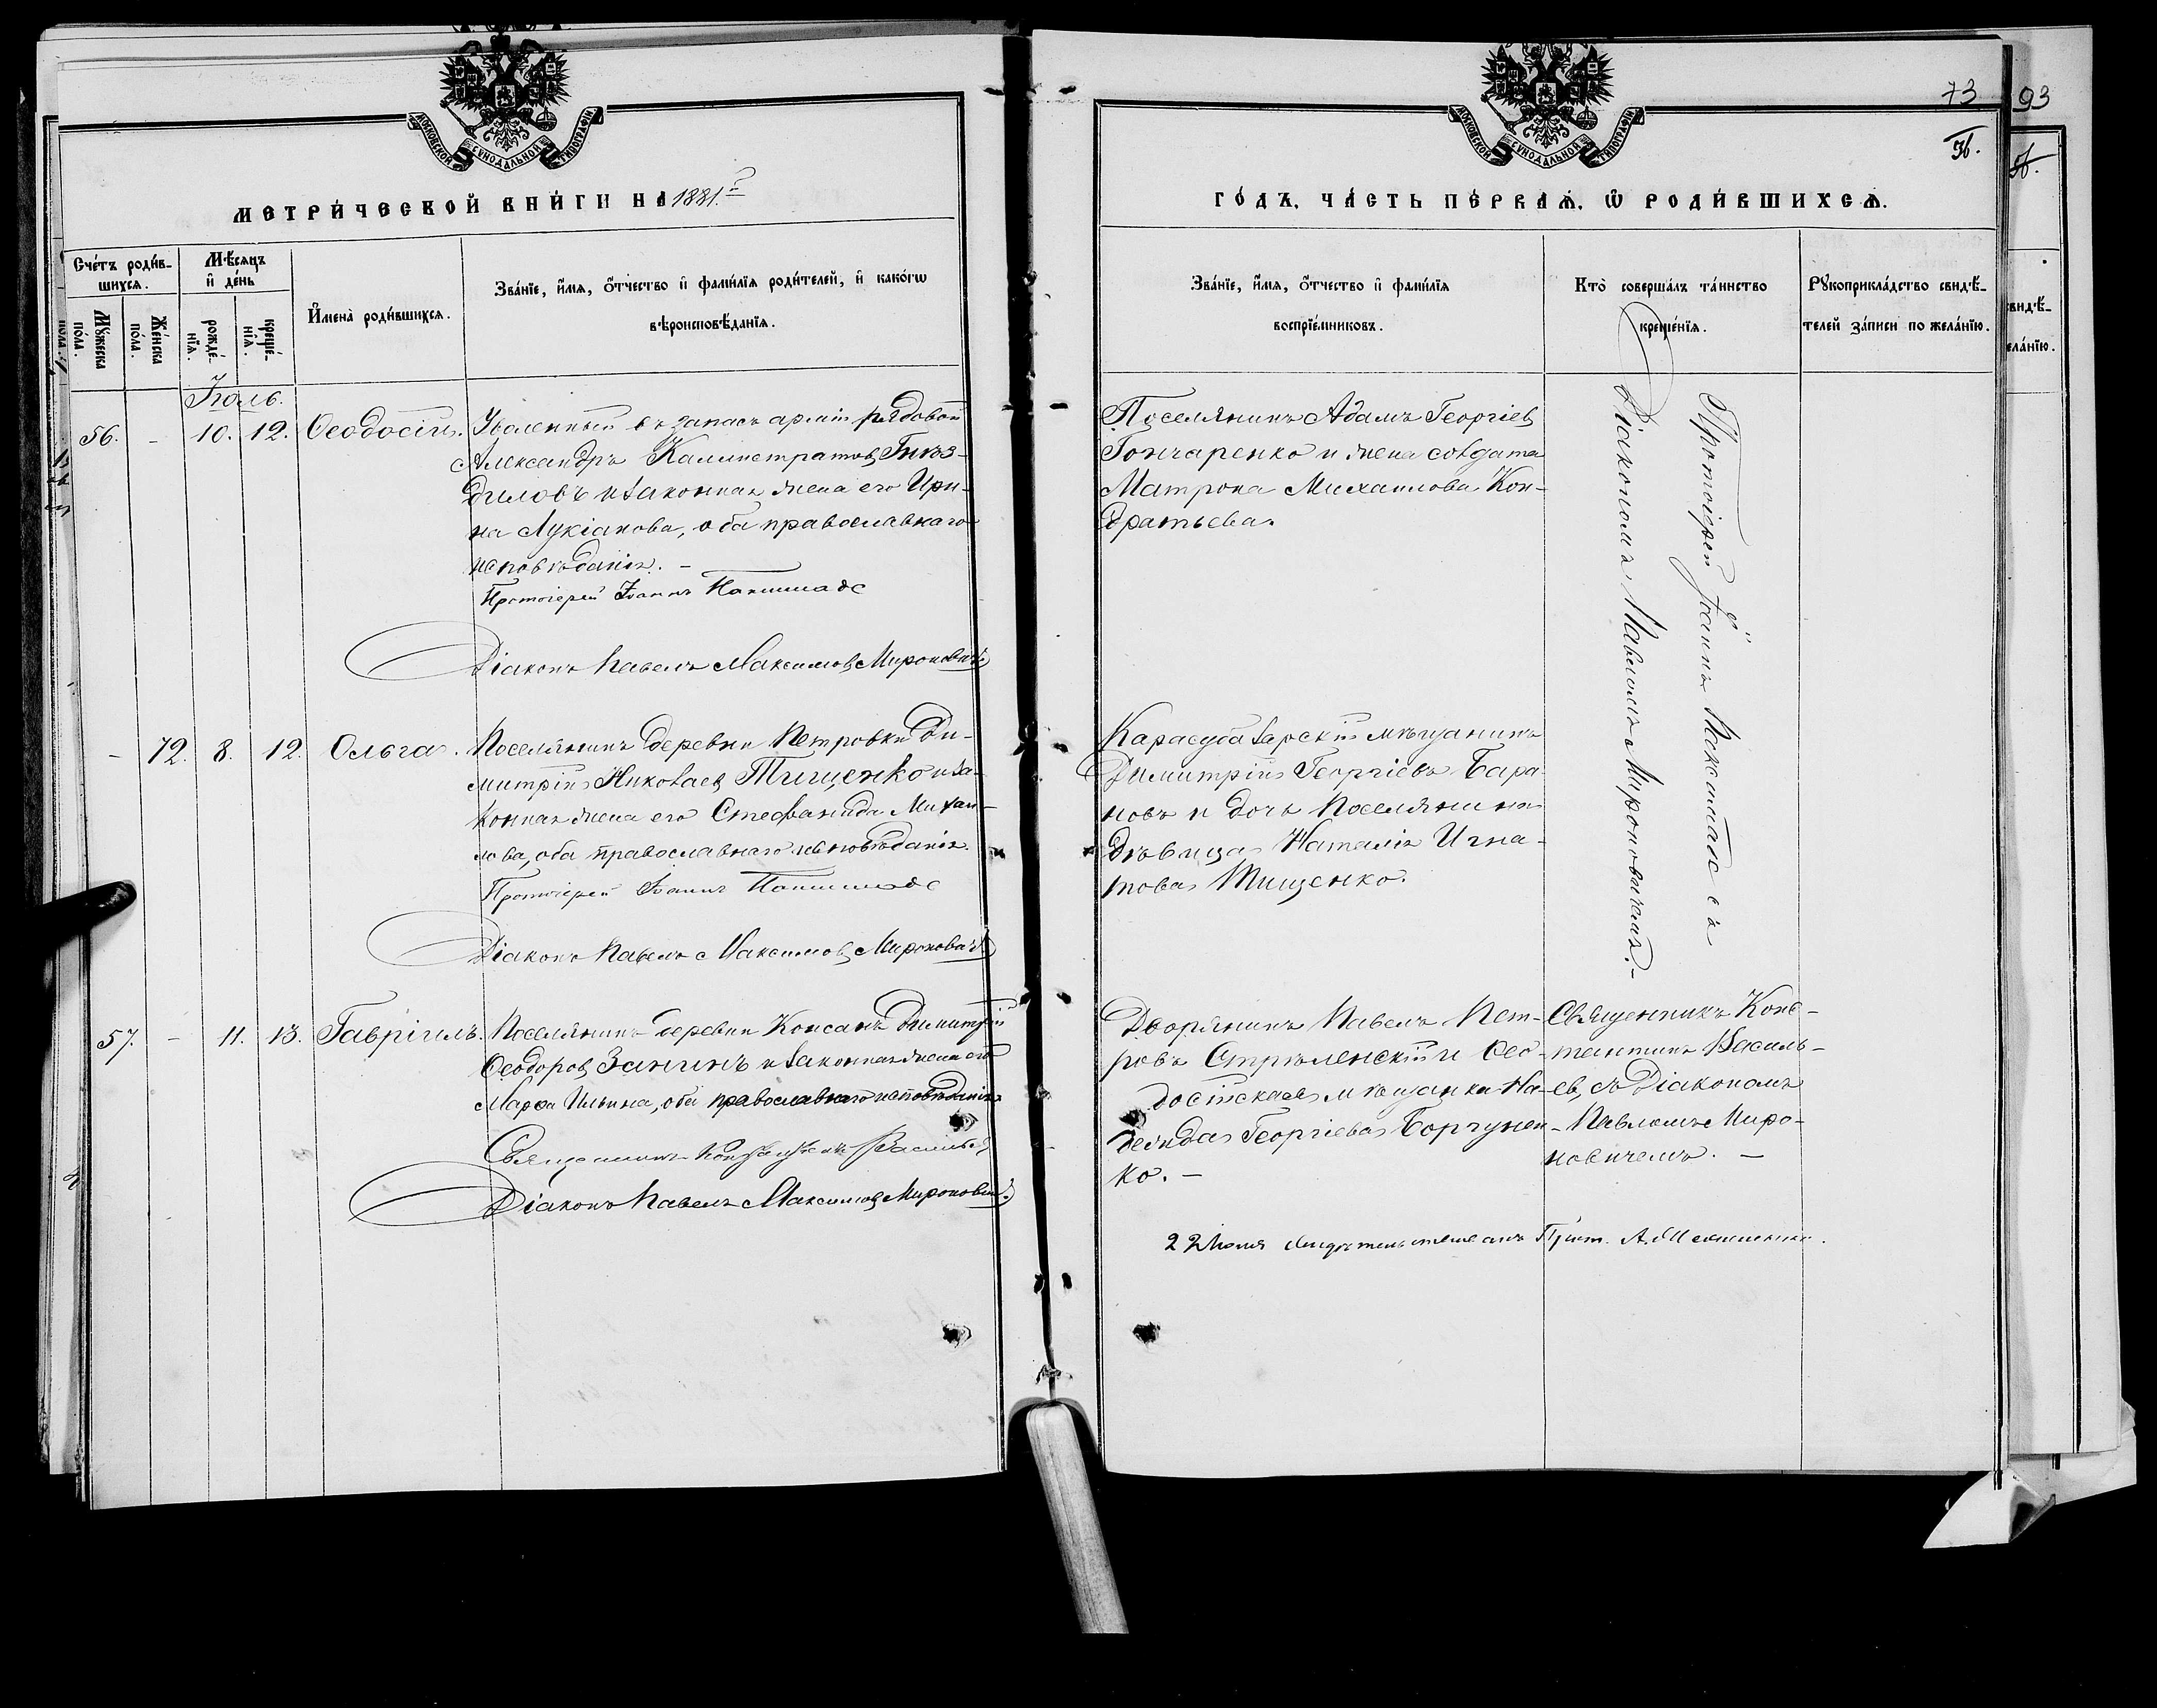 МОСКОВСКОЙ СУНОДАЛЬНОЙ ТИПОГРАФІИ
МЕТРИ́ЧЕСКОЙ КНИ́ГИ НА 1881.й
Сче́тъ роди́в-
шихся.
Мѣ́сяцъ
и҆ де́нь
Му́жеска
по́ла.
Же́нска
по́ла.
рожде́-
нїя.
креще́-
нїя.
И҆мена̀ роди́вшихся.
Зва́нїе, и҆́мя, ѻ҆́тчество и҆ фами́лїя роди́телей, и҆ како́гѡ
вѣроисповѣ́данїя.
Іюль.
56. - 10. 12. Ѳеодосій. Уволенный въ запасъ арміи рядовой
Александръ Каллистратовъ Гнѣз-
диловъ и законная жена его Ири-
на Лукіанова, оба православнаго
исповѣданія. -
Протоіерей Іоаннъ
Діаконъ Павелъ Максимовъ Мироновичъ
- 72. 8. 12. Ольга. Поселянинъ деревни Петровки Ди-
митрій Николаевъ Тищенко и за-
конная жена его Стефанида Михаи-
лова, оба православнаго исповѣданія.
Протоіерей Іоаннъ
Діаконъ Павелъ Максимовъ Мироновичъ
57. - 11. 13. Гавріилъ. Поселянинъ деревни Консанъ Димитрій
Ѳеодоровъ Занинъ и законная жена его
Марѳа Ильина, оба православнаго исповѣданія
Священникъ Константинъ Васильевъ
Діаконъ Павелъ Максимовъ Мироновичъ
МОСКОВСКОЙ СУНОДАЛЬНОЙ ТИПОГРАФІИ
73
93
ГО́ДЪ, ЧА́СТЬ ПЕ́РВАЯ, Ѡ҆ РОДИ́ВШИХСЯ.
Зва́нїе, и҆́мя, ѻ҆́тчество и҆ фами́лїя
воспрїе́мниковъ.
Кто̀ соверша́лъ та́инство
креще́нїя.
Рꙋкоприкла́дство свидѣ́-
телей за́писи по жела́нїю.
свидѣ́-
жела́нїю.
Поселянинъ Адамъ Георгіевъ
Гончаренко и жена солдата
Матрона Михаилова Кон-
дратьева.
Протоіерей Іоаннъ съ
Діакономъ Павломъ Мироновичемъ. -
Карасубазарскій мѣщанинъ
Димитрій Георгіевъ Бара-
новъ и дочь поселянина
дѣвица Наталія Игна-
това Тищенко.
Дворянинъ Павелъ Пет-
ровъ Стрѣленскій и Ѳео-
досійская мѣщанка На-
деждa Георгіева Боргунен-
ко. -
Священникъ Конс-
тантинъ Василь-
евъ, съ Діакономъ
Павломъ Миро-
новичемъ. -
22 Июля свидѣтельствовалъ Прот. А.